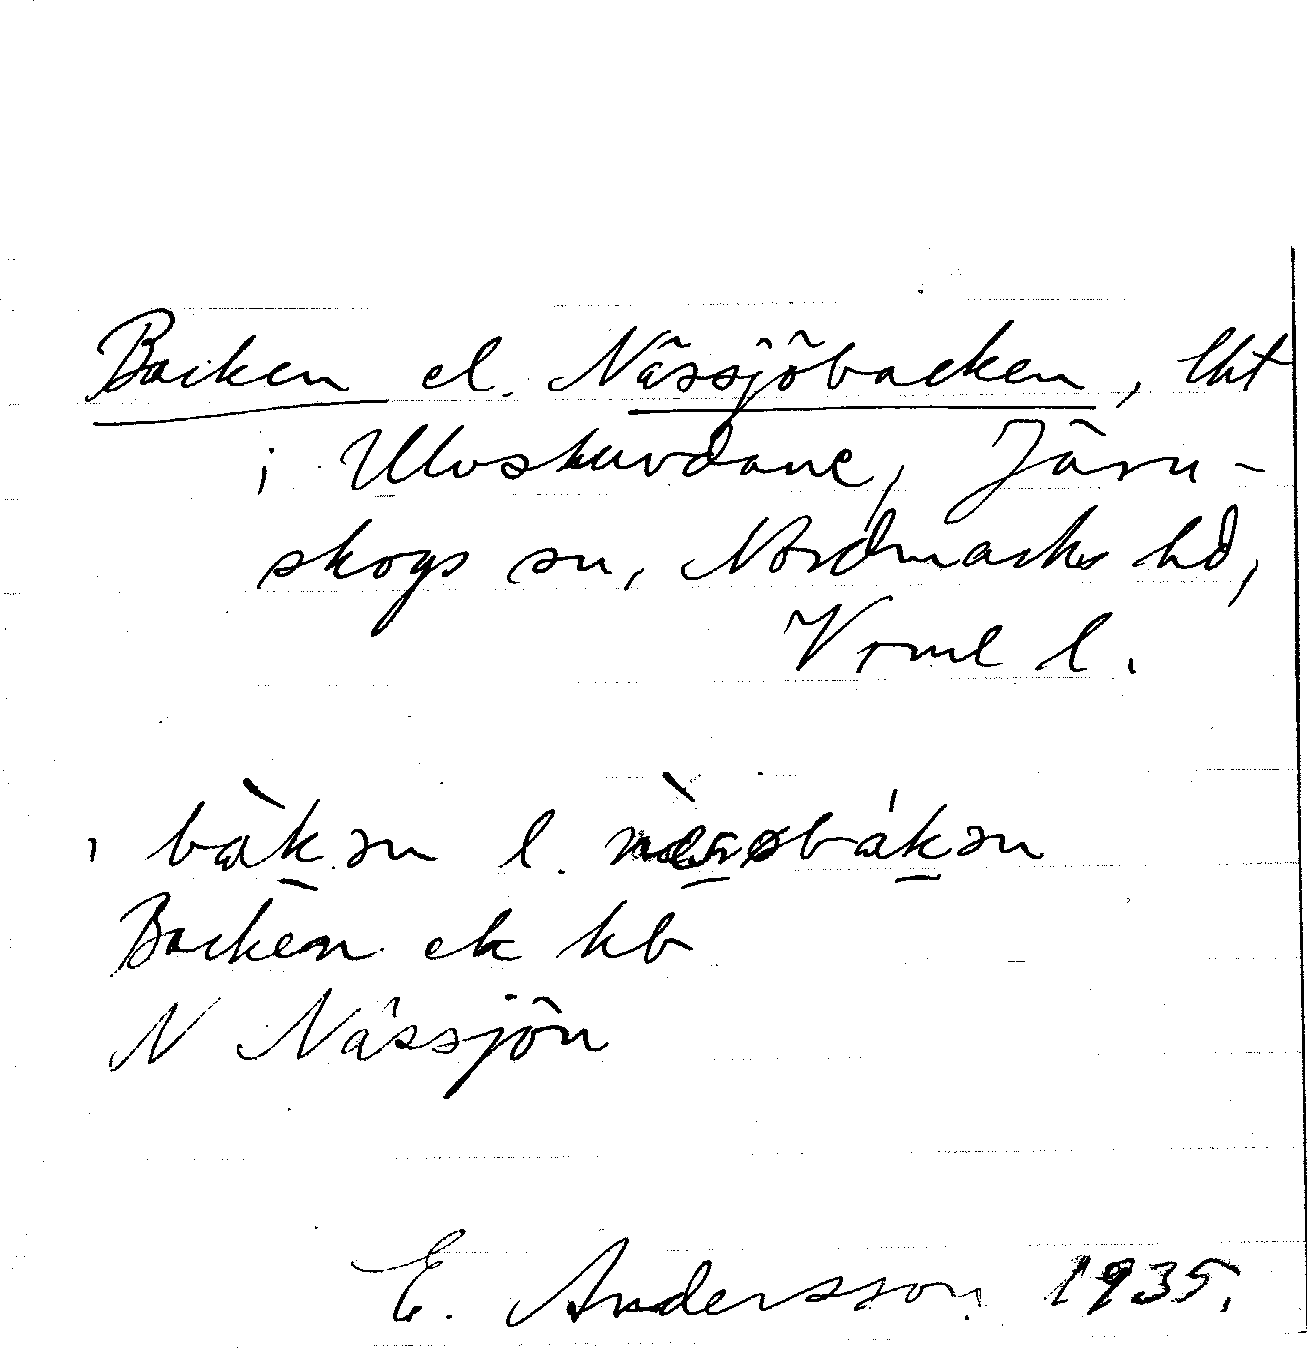 Backen el. Nässjöbacken, lht
i Ulvskuvdane, Järn-
skogs sn, Nordmarks hd,
Vrml l.
ı bàkən l.
Backen ek kb
N Nässjön
E. Andersson 1935.